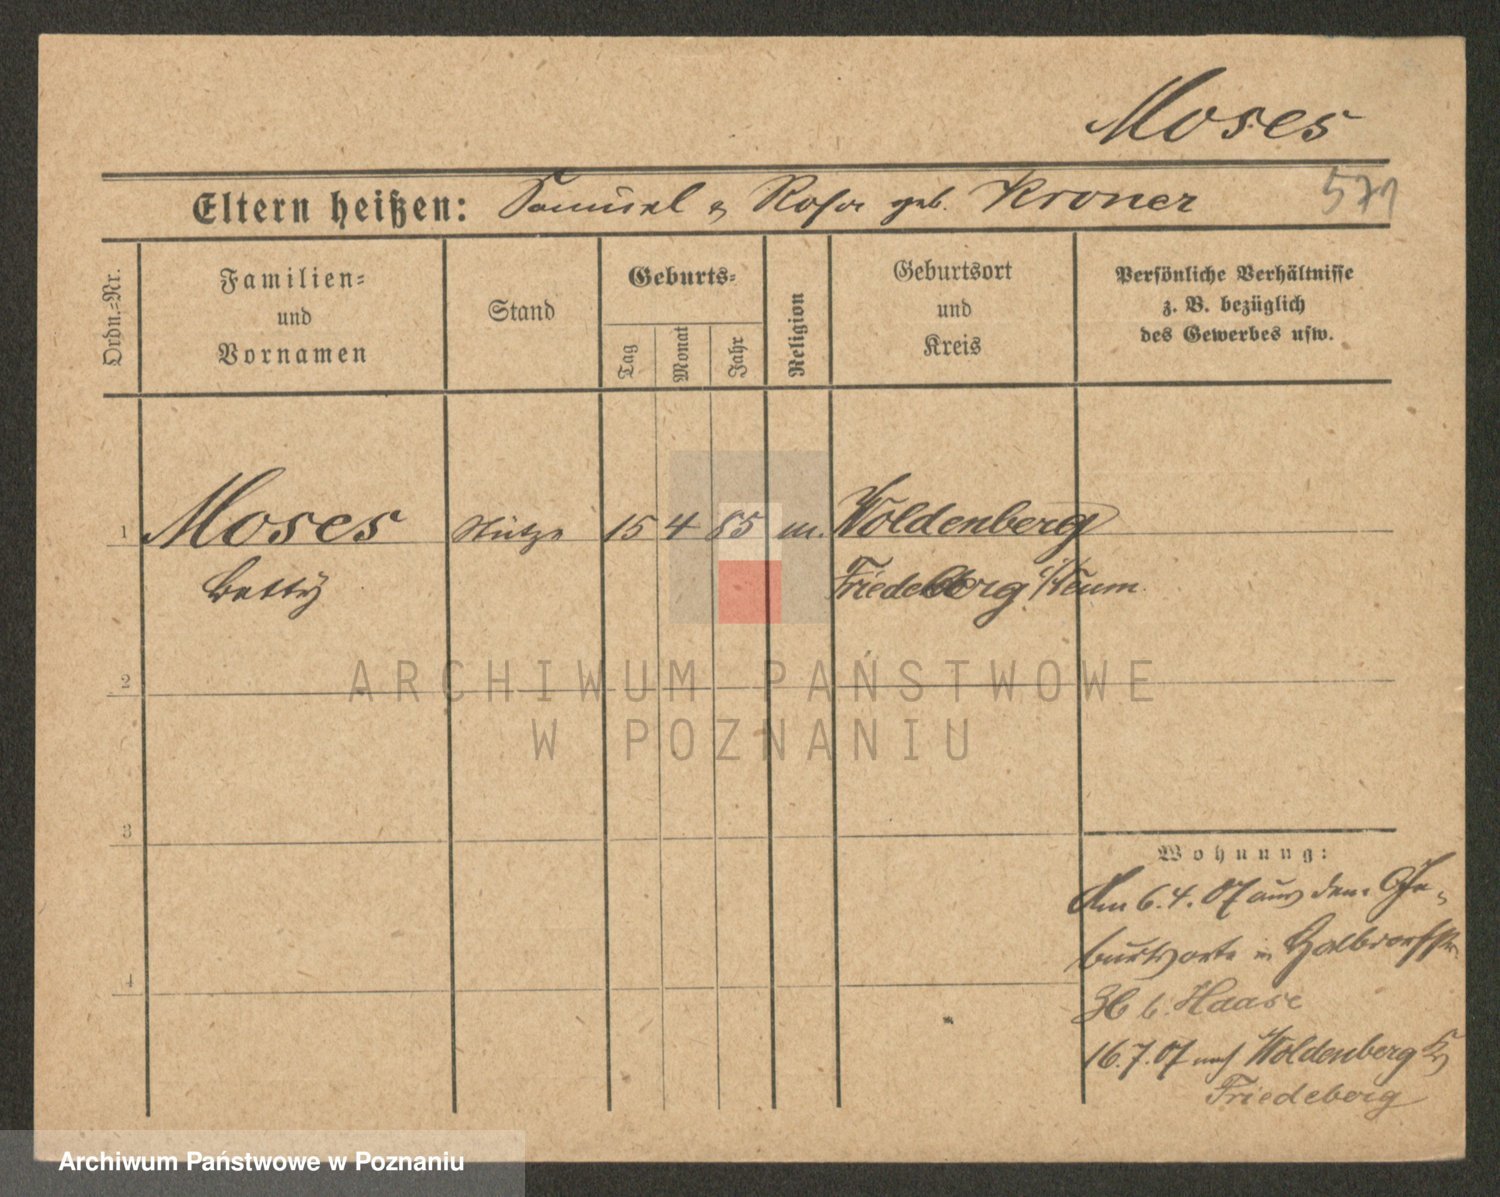 Moses
Eltern heißen: Samuel & Rosa geb. Kroner
571
Ordn.-Nr.
Familien-
und
Vornamen
Stand
Geburts-
Tag
Monat
Jahr
Religion
Geburtsort
und
Kreis
Persönliche Verhältnisse
z. B. bezüglich
des Gewerbes usw.
1 Moses Stütze 15 4 85 m. Woldenberg
Betty Friedeberg Neum.
2
3
4
Wohnung:
Am 6.4.07 aus dem Ge-
burtsorte in
b. Haase
16.7.07 nach Woldenberg Kr
Friedeberg
ARCHIWUM PAŃSTWOWE
W POZNANIU
Archiwum Państwowe w Poznaniu